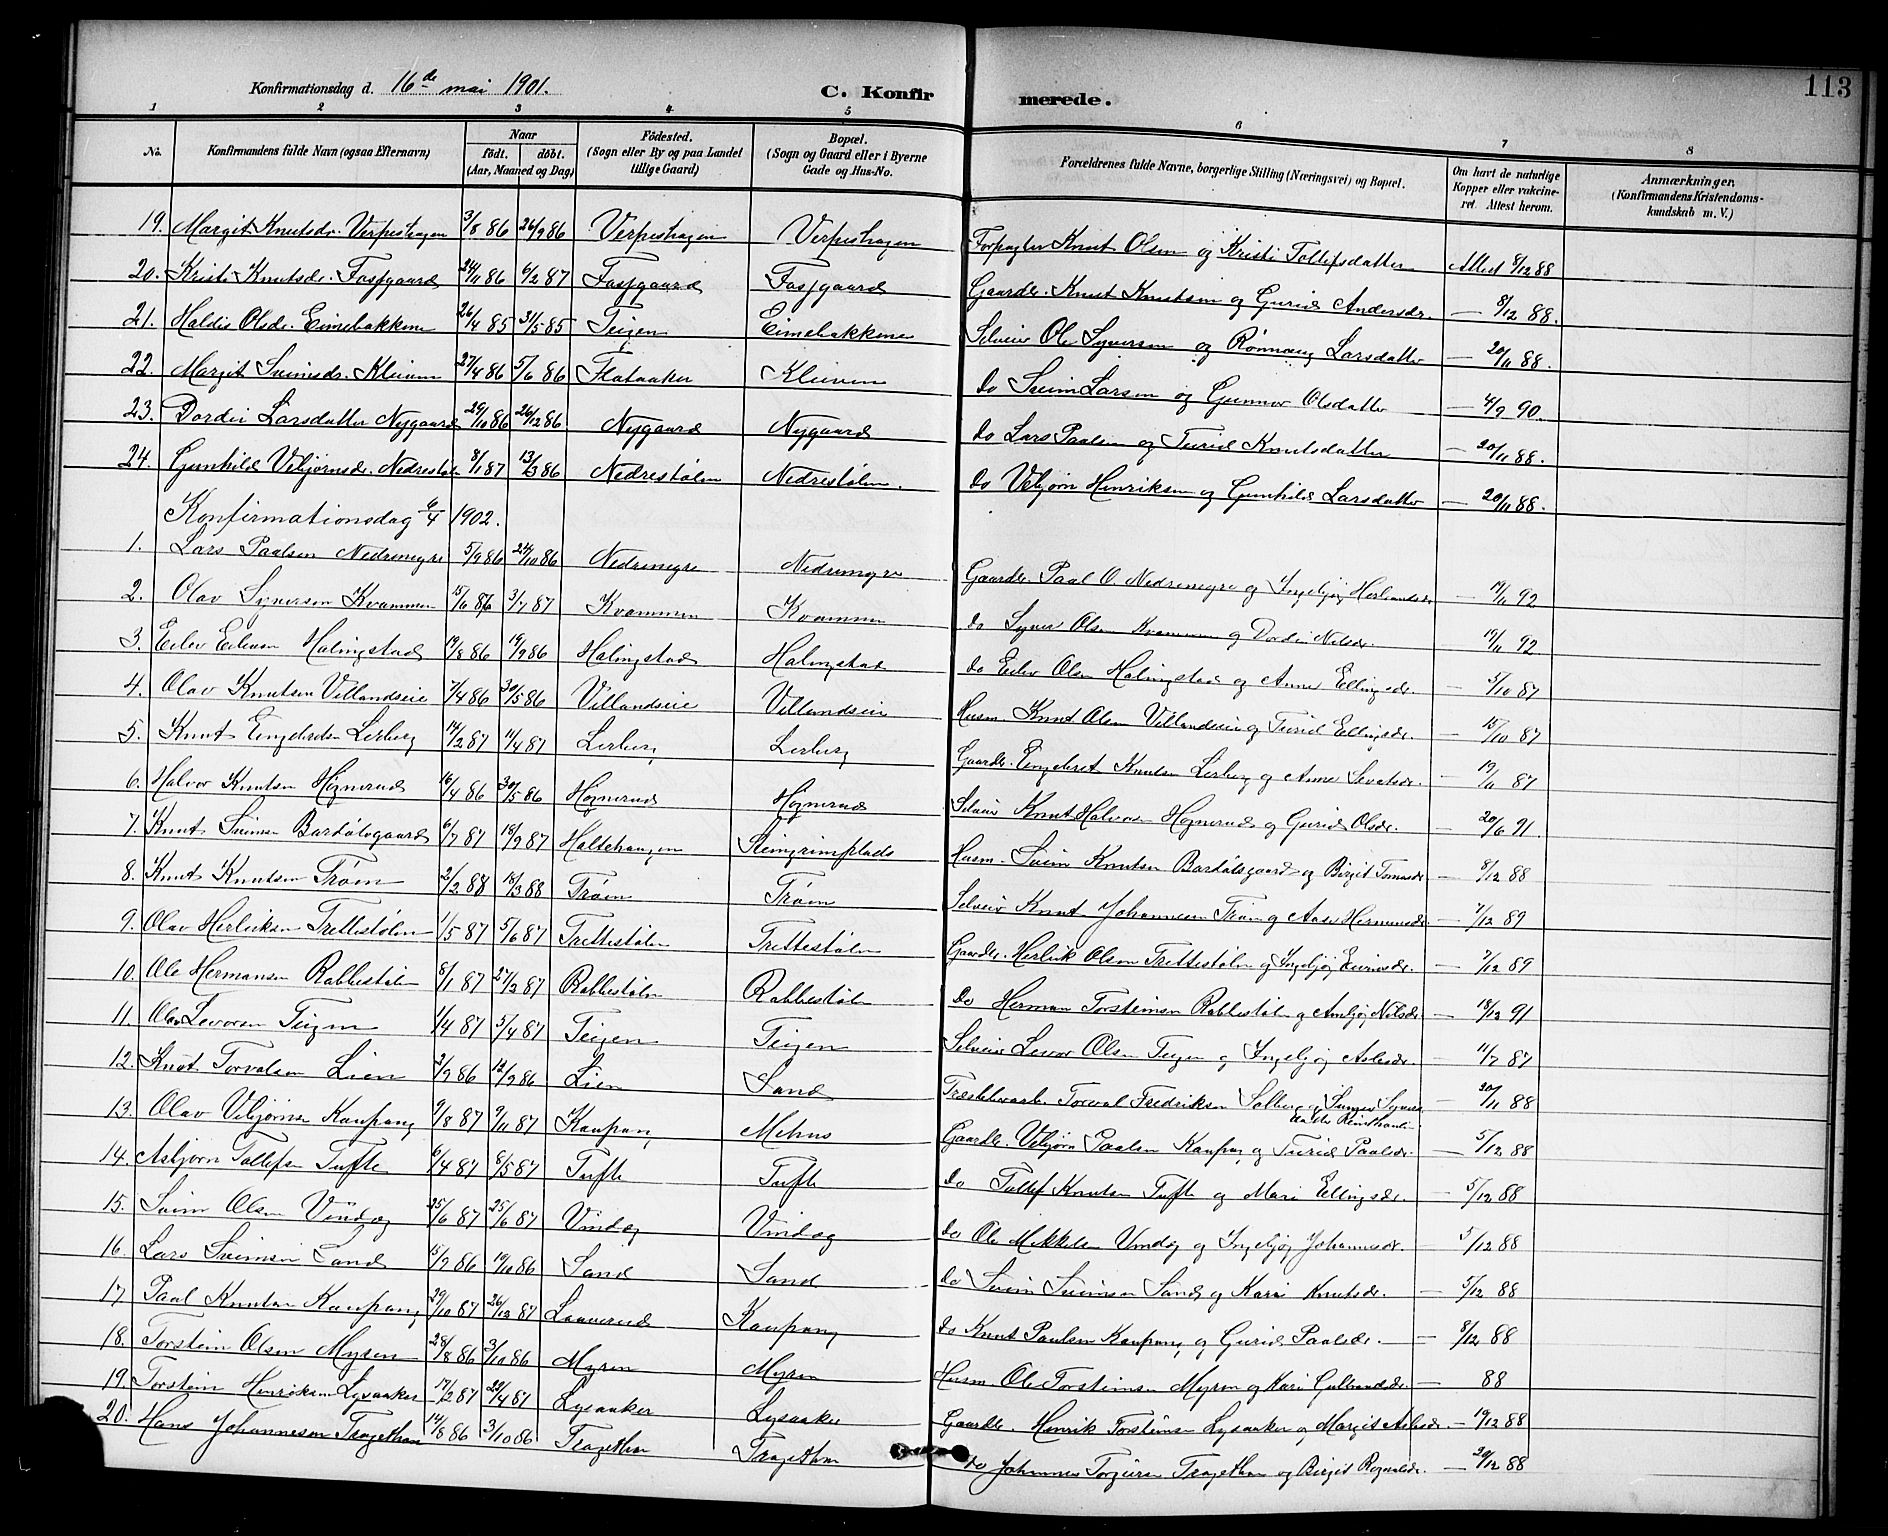 113
Konfirmationsdag d. 16de mai 1901.
C. Konfirmerede.
1 2 3 4 5 6 7 8
No. | Konfirmandens fulde Navn (ogsaa Efternavn) | Naar födt. döbt. (Aar, Maaned og Dag) | Födested. (Sogn eller By og paa Landet tillige Gaard) | Bopæl. (Sogn og Gaard eller i Byerne Gade og Hus-No. | Forældrenes fulde Navne, borgerlige Stilling (Næringsvei) og Bopæl. | Om havt de naturlige Kopper eller vakcineret. Attest herom. | Anmærkninger. (Konfirmandens Kristendomskundskab m. V.)
19. Margit Knutsdr. Verpeshagen 3/8 86 26/9 86 Verpeshagen Verpeshagen Forpagter Knut Olsen og Kristi Tollefsdatter Attest 8/12 88
20. Kristi Knutsdr. Fosfgaard 24/11 86 6/2 87 Fosfgaard Fosfgaard Gaardbr. Knut Knutsen og Gurid Andersdr. — 8/12 88.
21. Haldis Olsdr. Eimebakkene 26/4 85 31/5 85 Teigen Eimebakkene Selveier Ole Syversen og Rønnaug Larsdatter — 20/11 88.
22. Margit Sveinsdr. Kleiven 27/4 86 5/6 86 Flataaker Kleiven do Svein Larsen og Gunnor Olsdatter — 4/9 90.
23. Dordei Larsdatter Nygaard 29/10 86 26/12 86 Nygaard Nygaard do Lars Paalsen og Turid Knutsdatter — 20/11 88.
24. Gunhild Vebjørnsdr. Nedrestølen 8/1 87 13/3 86 Nedrestølen Nedrestølen. do Vebjørn Henriksen og Gunhild Larsdatter — 20/11 88.
Konfirmationsdag 6/4 1902.
1. Lars Paalsen Nedrenegre 5/9 86 24/10 86 Nedrenegre Nedrenegre Gaardbr. Paal O. Nedrenegre og Ingebjøg Herbrandsdr — 19/11 92
2. Olav Syversen Kvammen 15/11 86 3/7 87 Kvammen Kvammen do Syver Olsen Kvammen og Dordei Nilsdr. — 19/11 92
3. Eilev Eilevsen Halingstad 19/8 86 19/9 86 Halingstad Halingstad do Eilev Olsen Halingstad og Anne Ellingsdr. — 5/10 87
4. Olav Knutsen Villandseie 7/4 86 30/5 86 Villandseie Villandseie Husm. Knut Olsen Villandseie og Turid Ellingsdr. — 15/10 87
5. Knut Engebretsen Lerberg 14/2 87 11/4 87 Lerberg Lerberg Gaardbr. Engebret Knutsen Lerberg og Anne Sevatsdr. — 19/11 87
6. Halvor Knutsen Høgnerud 16/4 86 30/5 86 Høgnerud Høgnerud Selveier Knut Halvorsen Høgnerud og Gurid Olsdr. — 20/6 91.
7. Knut Sveinsen Bardølsgaard 6/7 87 18/9 87 Haltehaugen Steingrimsplads Husm. Svein Knutsen Bardølsgaard og Birgit Tomasdr — 8/12 88
8. Knut Knutsen Trøim 2/2 88 18/3 88 Trøim Trøim Selveier Knut Johannesen Trøim og Aase Hermansdr — 7/12 89
9. Olav Herleiksen Trettestølen 1/5 87 5/6 87 Trettestølen Trettestølen Gaardbr. Herleik Olsen Trettestølen og Ingebjøg Eiriksdr. — 7/12 89
10. Ole Hermansen Rabbestølen 8/1 87 27/2 87 Rabbestølen Rabbestølen do Herman Torsteinsen Rabbestølen og Ambjøg Nilsdr — 18/12 91
11. Olav Levorsen Teigen 1/4 87 5/4 87 Teigen Teigen Selveier Levor Olsen Teigen og Ingebjøg Aslesdr. — 11/7 87
12. Knut Torvalsen Lien 2/9 86 12/9 86 Lien Sand Torval Fredriksen Solberg og Syversdatter — 20/11 88
13. Olav Vebjørnsen Kaupang 9/8 87 9/11 87 Kaupang Mehus Gaardbr. Vebjørn Paalsen Kaupang og Turid Paalsdr. — 5/12 88
14. Asbjørn Tollefsen Tufte 6/4 87 8/5 87 Tufte Tufte do Tollef Knutsen Tufte og Mari Ellingsdr. — 5/12 88
15. Svein Olsen Vindøg 25/6 87 25/6 87 Vindøg Vindøg do Ole Mikkelsen Vindøg og Ingebjøg Johannesdr. — 5/12 88
16. Lars Sveinsen Sand 15/9 86 19/10 86 Sand Sand do Svein Sveinsen Sand og Kari Knutsdr. — 5/12 88
17. Paal Knutsen Kaupang 29/10 87 26/12 87 Laaverud Kaupang do Knut Paulsen Kaupang og Gurid Paalsdr. — 8/12 88
18. Torstein Olsen Myren 28/8 86 3/10 86 Myren Myren Husm. Ole Torsteinsen Myren og Kari Gulbrandsdr. — 88
19. Torstein Henriksen Lysaaker 17/2 87 23/4 87 Lysaaker Lysaaker Gaardbr. Henrik Torsteinsen Lysaaker og Margit Aslesdr — 19/12 88
20. Hans Johannesen Tragethon 14/8 86 3/10 86 Tragethon Tragethon do Johannes Torgeirsen Tragethon og Birgit Regnaldsdr. — 20/12 88